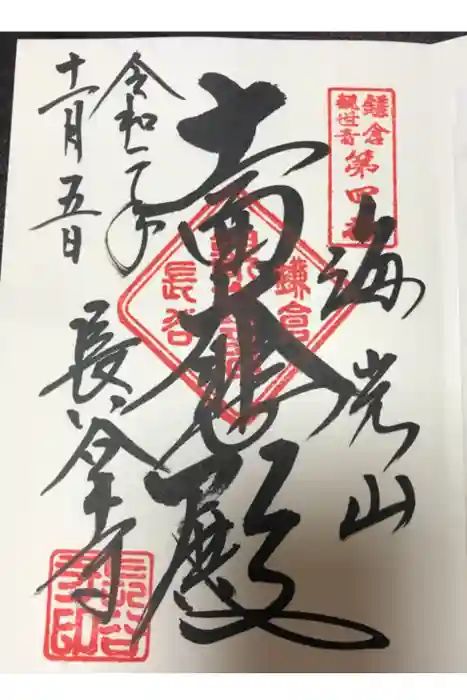 鎌倉
観世音
第四番
海光山
十一面大悲殿
鎌倉
長谷
令和二年
十一月五日
長谷寺
長谷
寺印